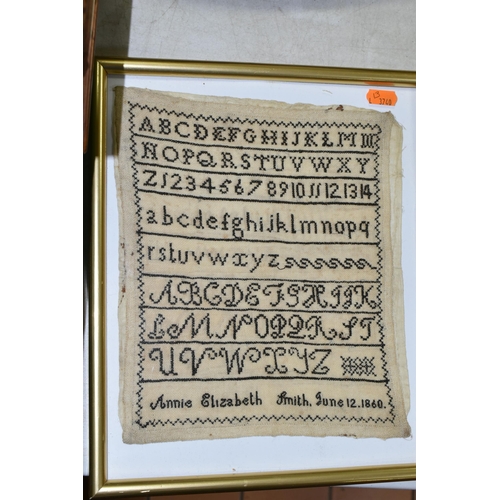 ABCDEFGHIJKLM
NOPQRSTUVWXY
Z1234567891011121314
abcdefghijklmnopq
rstuvwxyz
ABCDEFGHIJK
LMNOPQRST
UVWXYZ
Annie Elizabeth Smith. June 12. 1860.